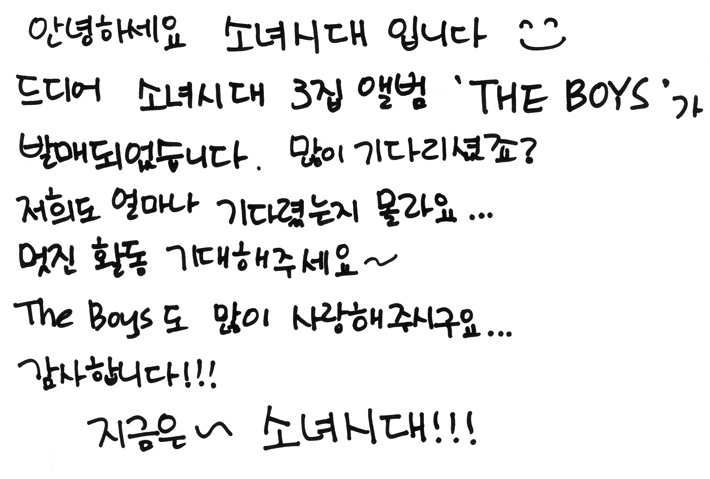 안녕하세요 소녀시대 입니다
드디어 소녀시대 3집 앨범 'THE BOYS'가
발매되었습니다. 많이 기다리셨죠?
저희도 얼마나 기다렸는지 몰라요...
멋진 활동 기대해주세요~
The Boys도 많이 사랑해주시구요...
감사합니다!!!
지금은~ 소녀시대!!!